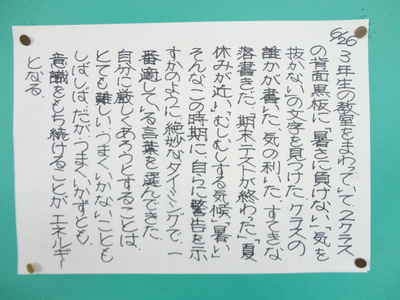 6/26
3年生の教室をまわっていて、2クラス
の背面黒板に「暑さに負けない」「気を
抜かない」の文字を見つけた。クラスの
誰かが書いた、気の利いた、すてきな
落書きだ。期末テストが終わった。「夏
休みが近い」「むしむしする気候」「暑い」
そんなこの時期に、自らに警告を示
すかのように、絶妙なタイミングで、一
番適している言葉を選んできた。
自分に厳しくあろうとすることは、
とても難しい。うまくいかないことも
しばしば。だが、うまくいかずとも、
意識をもち続けることが、エネルギー
となる。